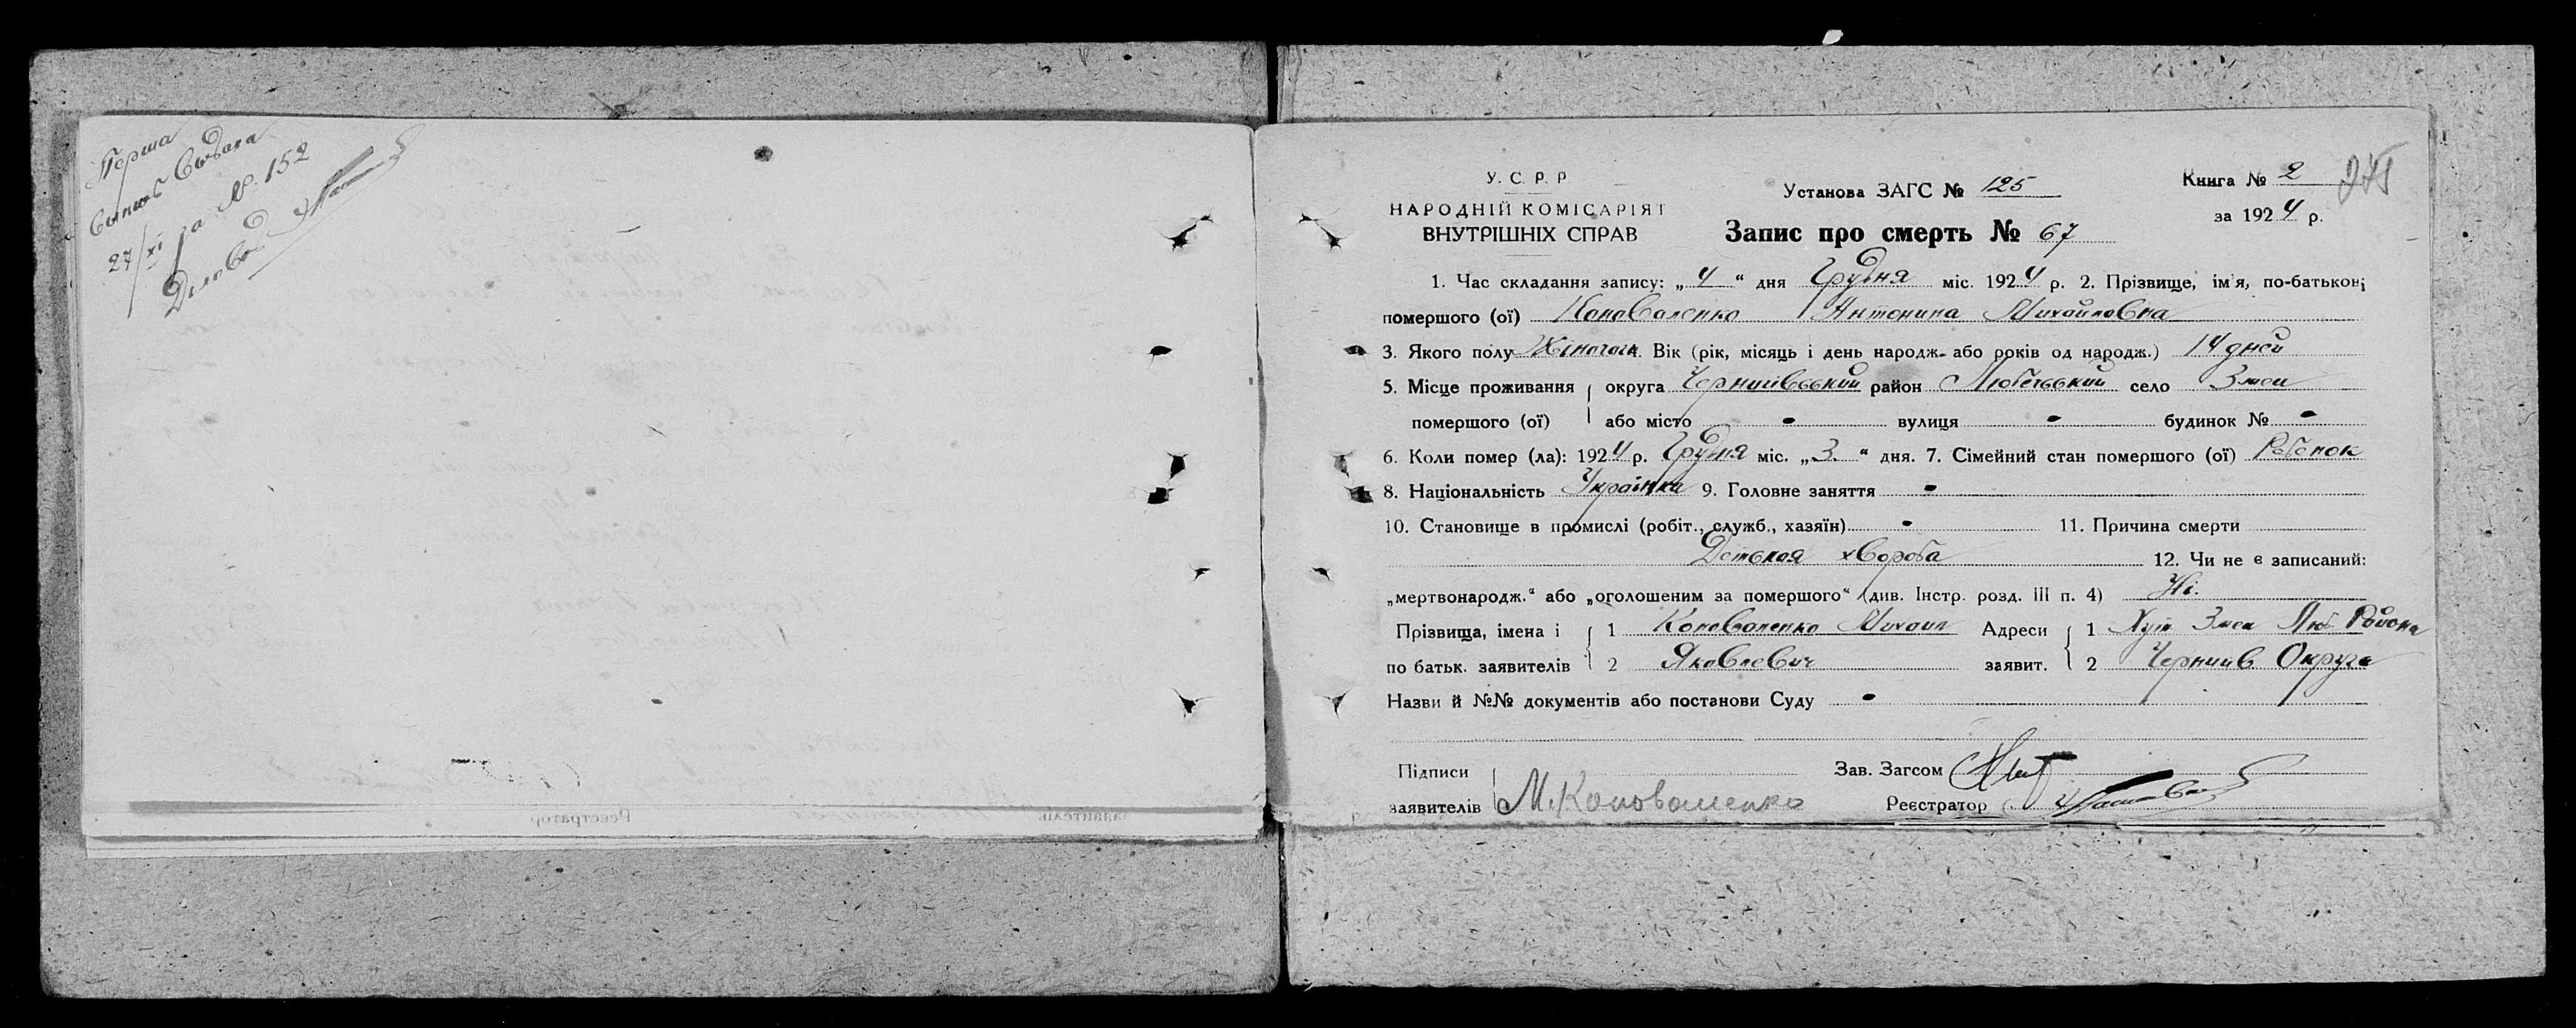 Перша
выпись выдана
27/XI за № 152
Діловод
У. С. Р. Р
НАРОДНІЙ КОМІСАРІЯТ
ВНУТРІШНІХ СПРАВ
Установа ЗАГС № 125
Книга № 2
за 1924 р.
Запис про смерть № 67
1. Час складання запису: „4" дня Грудня міс. 1924 р. 2. Прізвище, ім'я, по-батькові
помершого (ої) Коноваленко Антонина Михайловна
3. Якого полу Жіночого. Вік (рік, місяць і день народж. або років од народж.) 14 дней
5. Місце проживання округа Чернигівський район Любечський село Змеи
помершого (ої) або місто - вулиця - будинок № -
6. Коли помер (ла): 1924 р. Грудня міс. „3" дня. 7. Сімейний стан помершого (ої) Ребенок
8. Національність Українка 9. Головне заняття -
10. Становище в промислі (робіт., служб., хазяїн) - 11. Причина смерти
Детская хвороба 12. Чи не є записаний:
„мертвонародж." або „оголошеним за помершого" (див. Інстр. розд. III п. 4) Ні.
Прізвища, імена і 1 Коноваленко Михаил Адреси 1 Хут Змеи Люб Района
по батьк. заявителів 2 Яковлевич заявит. 2 Чернигів Округа
Назви й №№ документів або постанови Суду -
Підписи Зав. Загсом
заявителів М. Коноваленко Реєстратор
Реєстратор заявителів